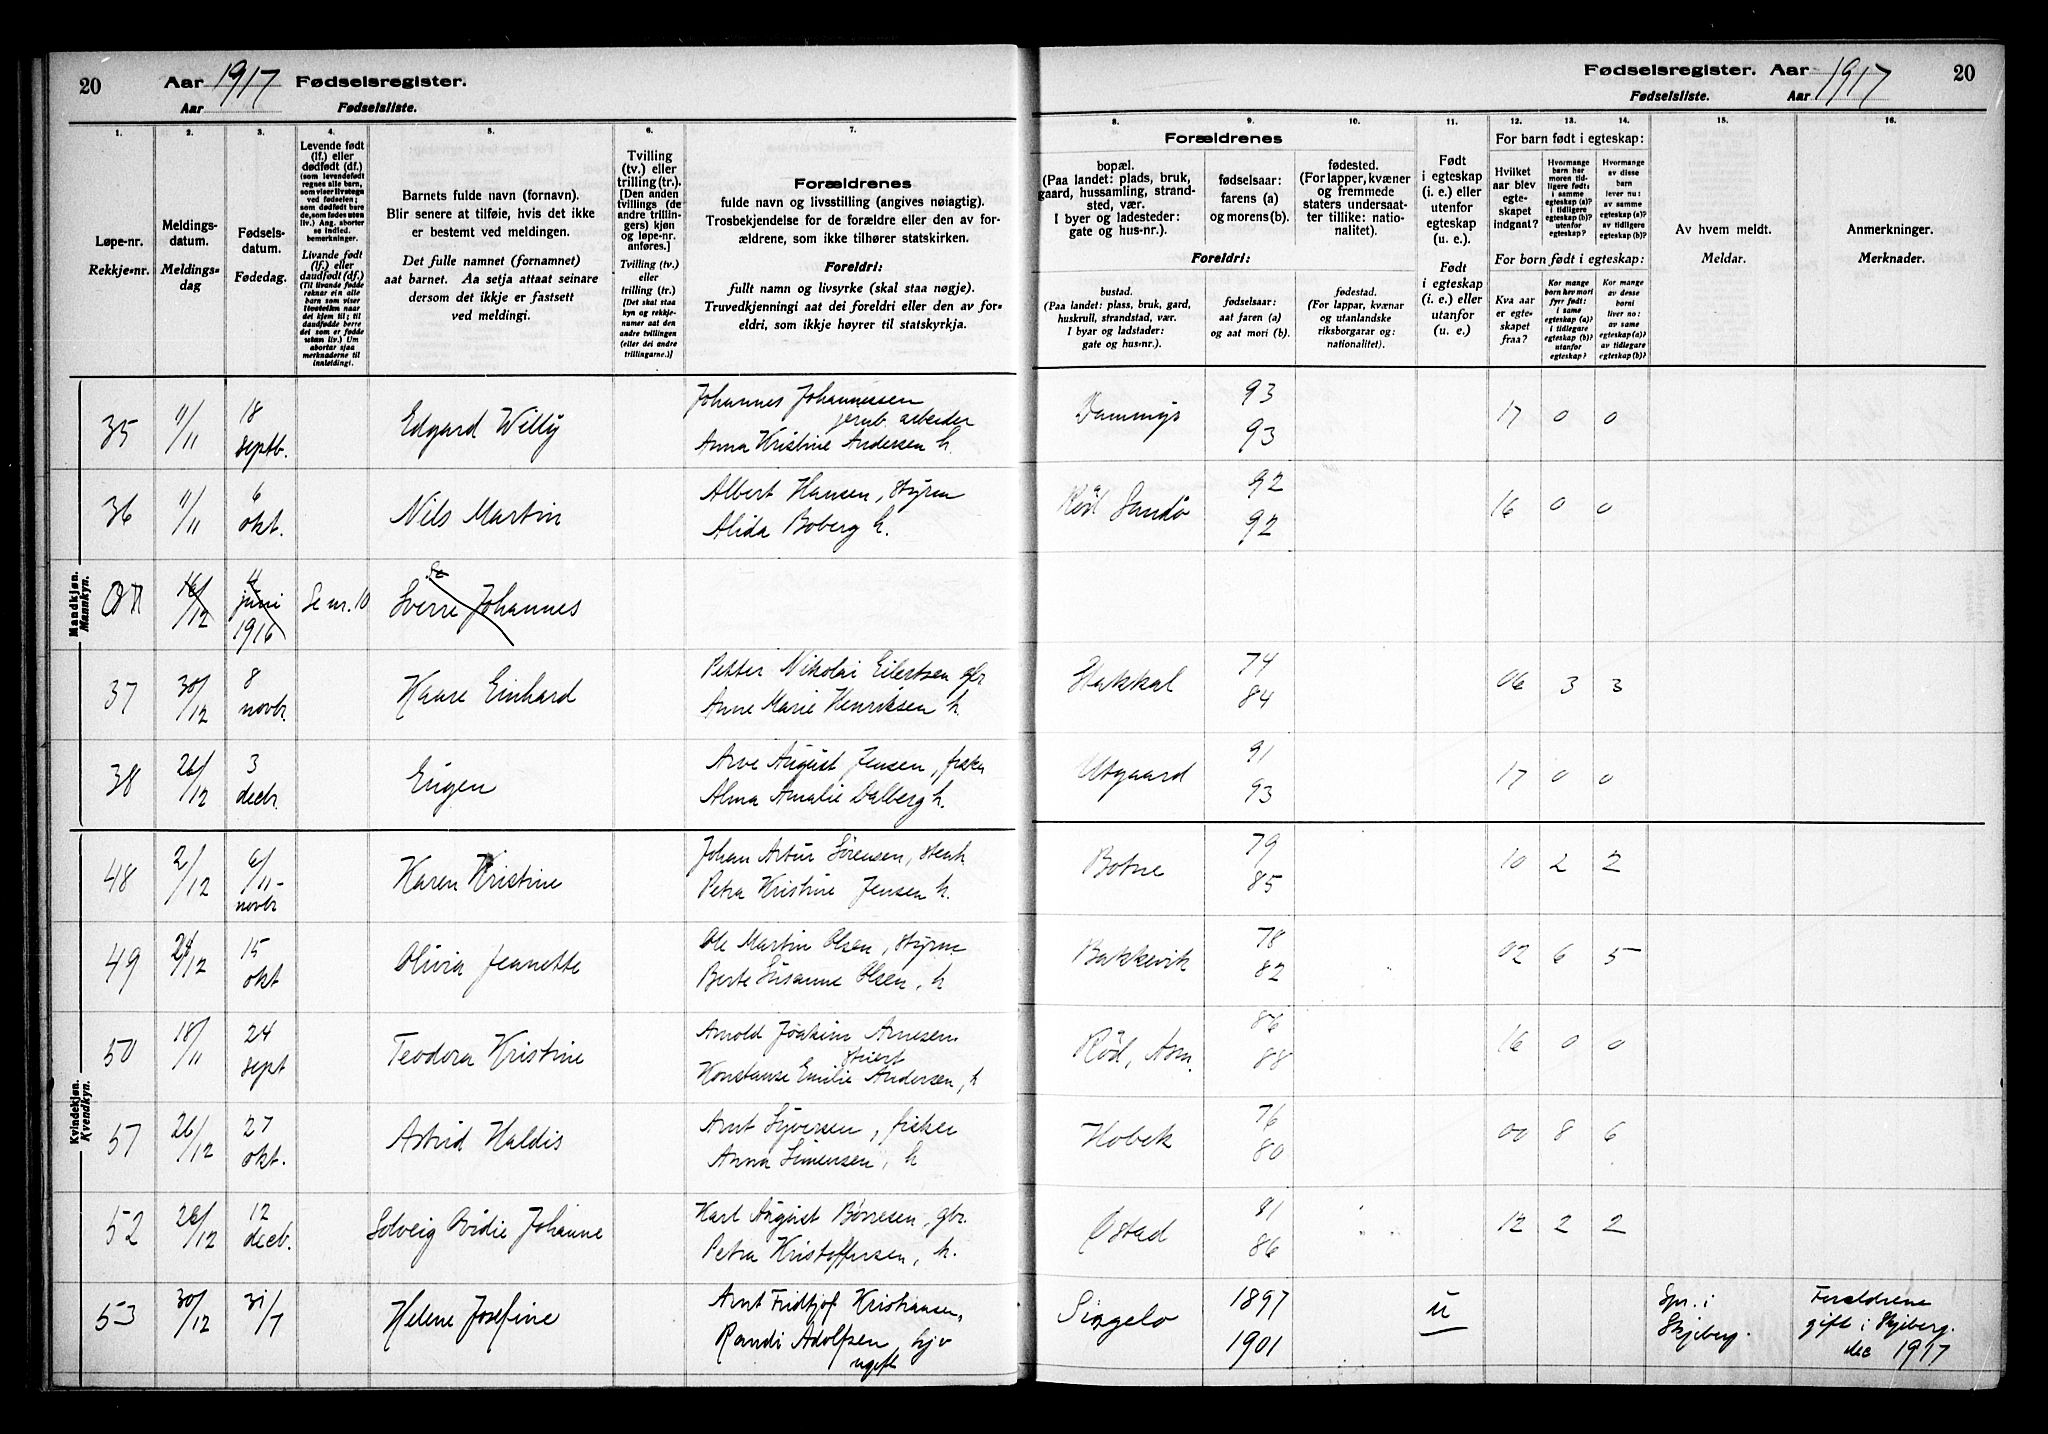 20 Aar 1917 Fødselsregister.
Aar Fødselsliste.
Fødselsregister. Aar 1917 20
Fødselsliste. Aar
1. 2. 3. 4. 5. 6. 7.
8. 9. 10. 11. 12. 13. 14. 15. 16.
Løpe-nr.
Rekkje-nr.
Meldings-
datum.
Meldings-
dag
Fødsels-
datum.
Fødedag.
Levende født
(lf.) eller
dødfødt (df.)
Livande født
(lf.) eller
daudfødt (df.)
Barnets fulde navn (fornavn).
Blir senere at tilføie, hvis det ikke
er bestemt ved meldingen.
Det fulle namnet (fornamnet)
aat barnet. Aa setja attaat seinare
dersom det ikkje er fastsett
ved meldingi.
Tvilling
(tv.) eller
trilling (tr.).
[Den anden
tvillings (de
andre trillin-
gers) kjøn
og løpe-nr.
anføres.]
Tvilling (tv.)
eller
trilling (tr.)
[Det skal staa
kyn og rekkje-
numer aat den
andre tvillingen
(eller dei andre
trillingarne.)]
Forældrenes
fulde navn og livsstilling (angives nøiagtig).
Trosbekjendelse for de forældre eller den av for-
ældrene, som ikke tilhører statskirken.
Foreldri:
fullt namn og livsyrke (skal staa nøgje).
Truvedkjenningi aat dei foreldri eller den av for-
eldri, som ikkje høyrer til statskyrkja.
Forældrenes
bopæl.
(Paa landet: plads, bruk,
gaard, hussamling, strand-
sted, vær.
I byer og ladesteder:
gate og hus-nr.).
fødselsaar:
farens (a)
og morens (b).
fødested.
(For lapper, kvæner
og fremmede
staters undersaat-
ter tillike: natio-
nalitet).
Foreldri:
bustad.
(Paa landet: plass, bruk, gard,
huskrull, strandstad, vær.
I byar og ladstader:
gate og hus-nr.).
fødselsaar:
aat faren (a)
og aat mori (b).
fødestad.
(For lappar, kvænar
og utanlandske
riksborgarar og:
nationalitet).
Født
i egteskap
(i. e.) eller
utenfor
egteskap
(u. e.).
Født
i egteskap
(i. e.) eller
utanfor
(u. e.)
For barn født i egteskap:
Hvilket
aar blev
egte-
skapet
indgaat?
Hvormange
barn har
moren tid-
ligere født:
i samme
egteskap (a)?
i tidligere
egteskap (b)?
utenfor
egteskap?
Hvormange
av disse
barn
lever nu:
av samme
egteskap (a)?
av tidligere
egteskap (b)?
For barn født i egteskap:
Kva aar
er egte-
skapet
fraa?
Kor mange
barn hev mori
fyrr født:
i same
egteskap (a)?
i tidlegare
egteskap (b)?
utanfor
egteskap?
Kor mange
av desse
borni
liver no:
av same
egteskap (a)?
av tidlegare
egteskap (b)?
Av hvem meldt.
Meldar.
Anmerkninger.
Merknader.
Mandkjøn.
Mannkyn.
35 11/11 18 septb. Edgard Willy Johannes Johannessen
jernb. arbeider
Anna Kristine Andersen h. 93 93 17 0 0
36 11/11 6 okt. Nils Martin Albert Hansen, styrm
Alida Boberg h. Rød Sandø 92 92 16 0 0
16/12 4 juni 1916 Se nr. 10 Sverre Johannes
37 30/12 8 novbr. Kaare Einhard Petter Nikolai Eilertsen gbr
Anne Marie Henriksen h. Stakkal 74 84 06 3 3
38 26/12 3 decbr. Eugen Arve August Jensen, fisker
Alma Amalie Dalberg h. Utgaard 91 93 17 0 0
Kvindekjøn.
Kvendkyn.
48 2/12 6/11 novbr Karen Kristine Johan Artur Sørensen, stenh
Petra Kristine Jensen h. Botne 79 85 10 2 2
49 28/12 15 okt Olivia Jeanette Ole Martin Olsen, styrm.
Berte Susanne Olsen, h Bakkevik 78 82 02 6 5
50 18/11 24 sept Teodora Kristine Arnold Joakim Arnesen
stuert
Konstanse Emilie Andersen, h Rød, Asm. 86 88 16 0 0
51 26/12 27 okt. Astrid Haldis Arnt Syversen, fisker
Anna Simensen, h Hobek 76 80 00 8 6
52 26/12 12 decb. Solveig Ovidie Johanne Karl August Børresen, gbr.
Petra Kristoffersen, h. Østad 81 86 12 2 2
53 30/12 31/7 Helene Josefine Arnt Fridtjof Kristiansen,
Randi Adolfsen hjv
ugift Singelø 1897 1901 u Spr. i
Skjeberg. Forældrene
gift i Skjeberg.
dec 1917